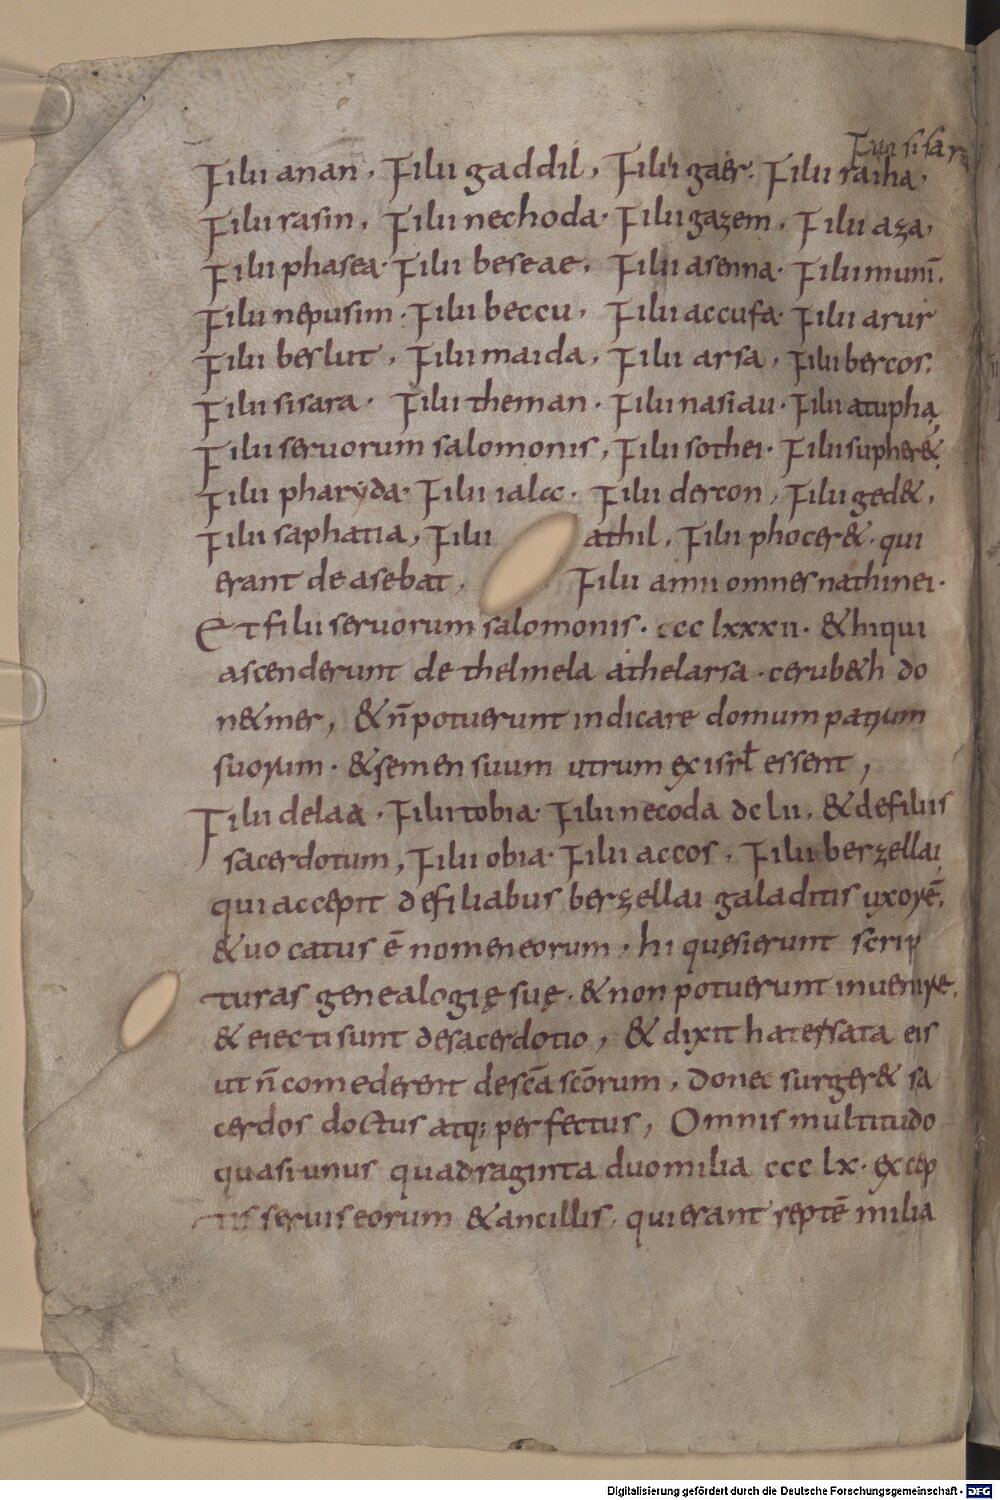 Filii sisar
Filii anan. Filii gaddil. Filii gaer. Filii raiha.
Filii rasin. Filii nechoda. Filii gazem. Filii aza.
Filii phasea. Filii beseae. Filii asenna. Filii munī.
Filii nepusim. Filii beccu. Filii accufa. Filii arur
Filii beslut. Filii maida. Filii arsa. Filii bercos.
Filii sisara. Filii theman. Filii nasiau. Filii atupha,
Filii seruorum salomonis, Filii sothei. Filii supher&,
Filii pharyda. Filii ialcc. Filii dercon, Filii ged&,
Filii saphatia, Filii athil, Filii phocer&. qui
erant de asebat. Filii amii omnes nathinei.
Et filii seruorum salomonis. ccc lxxxii. & hi qui
ascenderunt de thelmela athelarsa. cerub&h do
n&mer, & n̄ potuerunt indicare domum patrum
suorum. & semen suum utrum ex isrł essent,
Filii delaa. Filii tobia. Filii necoda dc lii. & de filiis
sacerdotum, Filii obia. Filii accos. Filii berzellai,
qui accepit de filiabus berzellai galaditis uxorē,
& uocatus ē nomen eorum. hi quęsierunt scrip
turas genealogię suę. & non potuerunt inuenire,
& eiecti sunt de sacerdotio, & dixit hatersata eis
ut n̄ comederent de scā scōrum, donec surger& sa
cerdos doctus atq; perfectus, Omnis multitudo
quasi unus quadraginta duo milia ccc lx. excep
tis seruis eorum & ancillis, qui erant septē milia
Digitalisierung gefördert durch die Deutsche Forschungsgemeinschaft - DFG